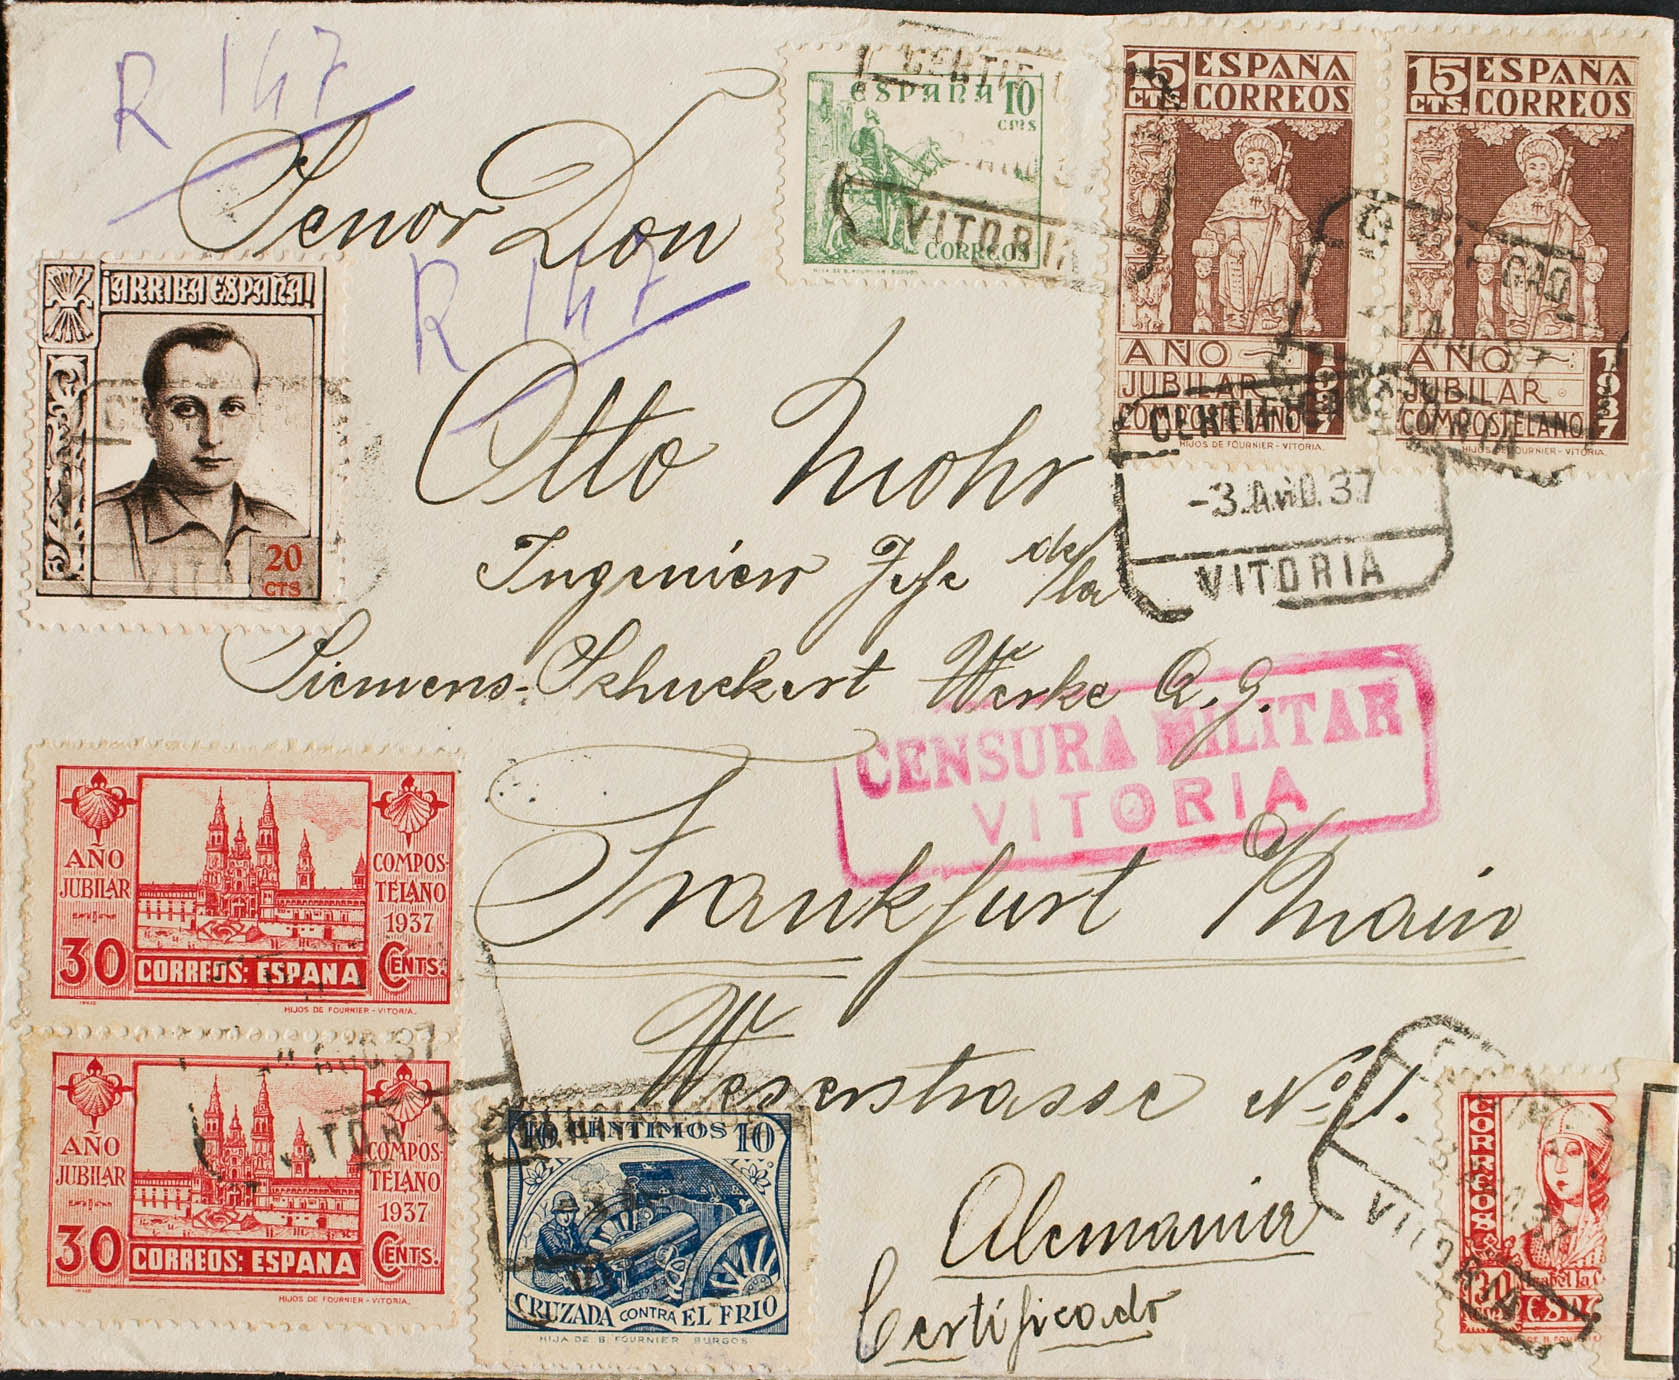 R 147
Señor Don
R 147
Otto Mohr
Ingeniero Jefe de la
Siemens-Schuckert Werke A.G.
Frankfurt Main
Weserstrasse No 1.
Alemania
Certificado
ESPAÑA 10
cms
CORREOS
HIJA DE B. FOURNIER-BURGOS
CERTIF
VITORIA
15 CTS. ESPAÑA CORREOS
AÑO JUBILAR COMPOSTELANO 1937
HIJOS DE FOURNIER-VITORIA.
15 CTS. ESPAÑA CORREOS
AÑO JUBILAR COMPOSTELANO 1937
HIJOS DE FOURNIER-VITORIA.
-3.AGO.37
VITORIA
¡ARRIBA ESPAÑA!
20
CTS
CENSURA MILITAR
VITORIA
AÑO JUBILAR
COMPOSTELANO 1937
30 CORREOS: ESPAÑA CENTS.
HIJOS DE FOURNIER-VITORIA.
AÑO JUBILAR
COMPOSTELANO 1937
30 CORREOS: ESPAÑA CENTS.
HIJOS DE FOURNIER-VITORIA.
10 CENTIMOS 10
CRUZADA CONTRA EL FRIO
HIJA DE B. FOURNIER BURGOS
CORREOS
30
Isabel la C